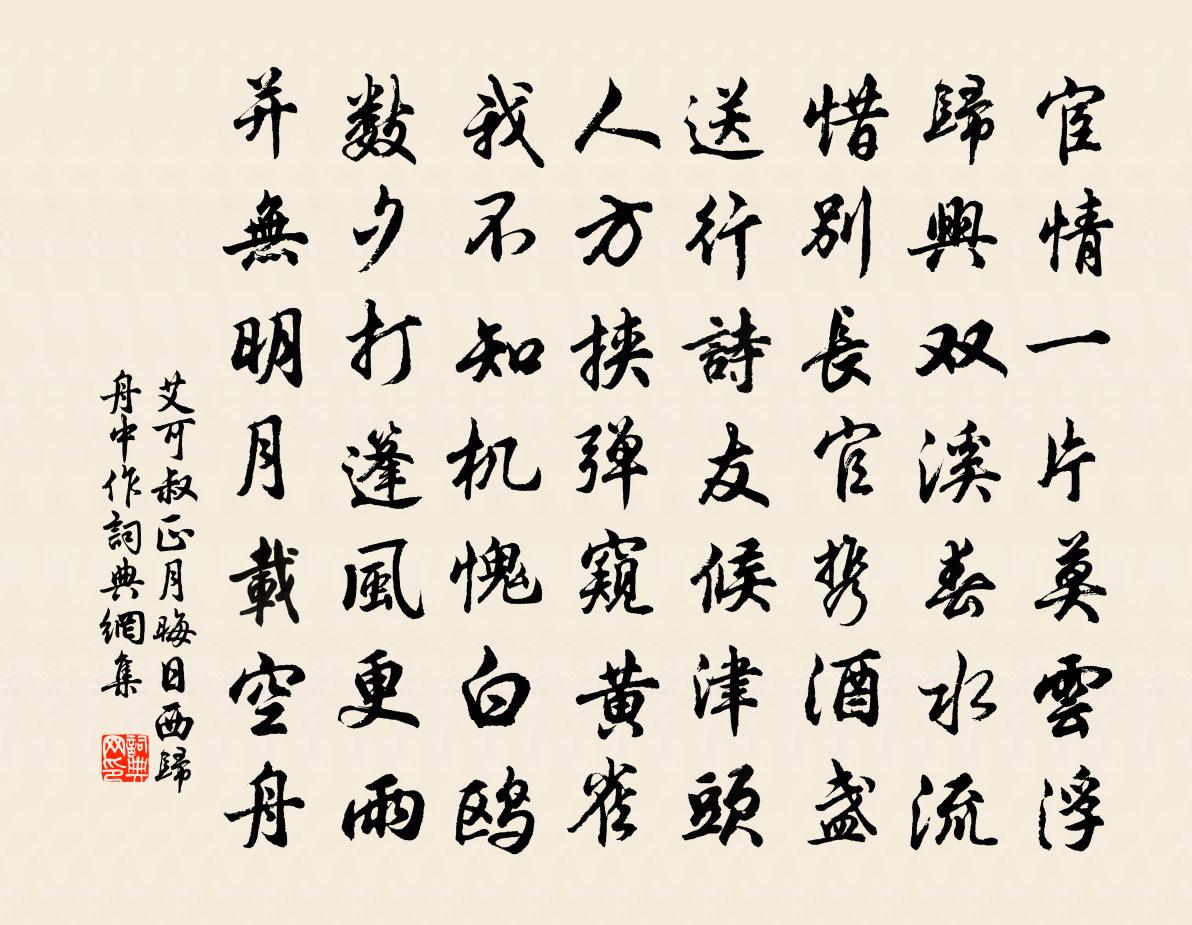 宦情一片莫雲浮
歸興双溪春水流
惜别長官携酒盏
送行詩友候津頭
人方挾弹窺黄雀
我不知机愧白鸥
數夕打蓬風更雨
并無明月載空舟
艾可叔正月晦日西歸
舟中作詞典網集
詞典网印